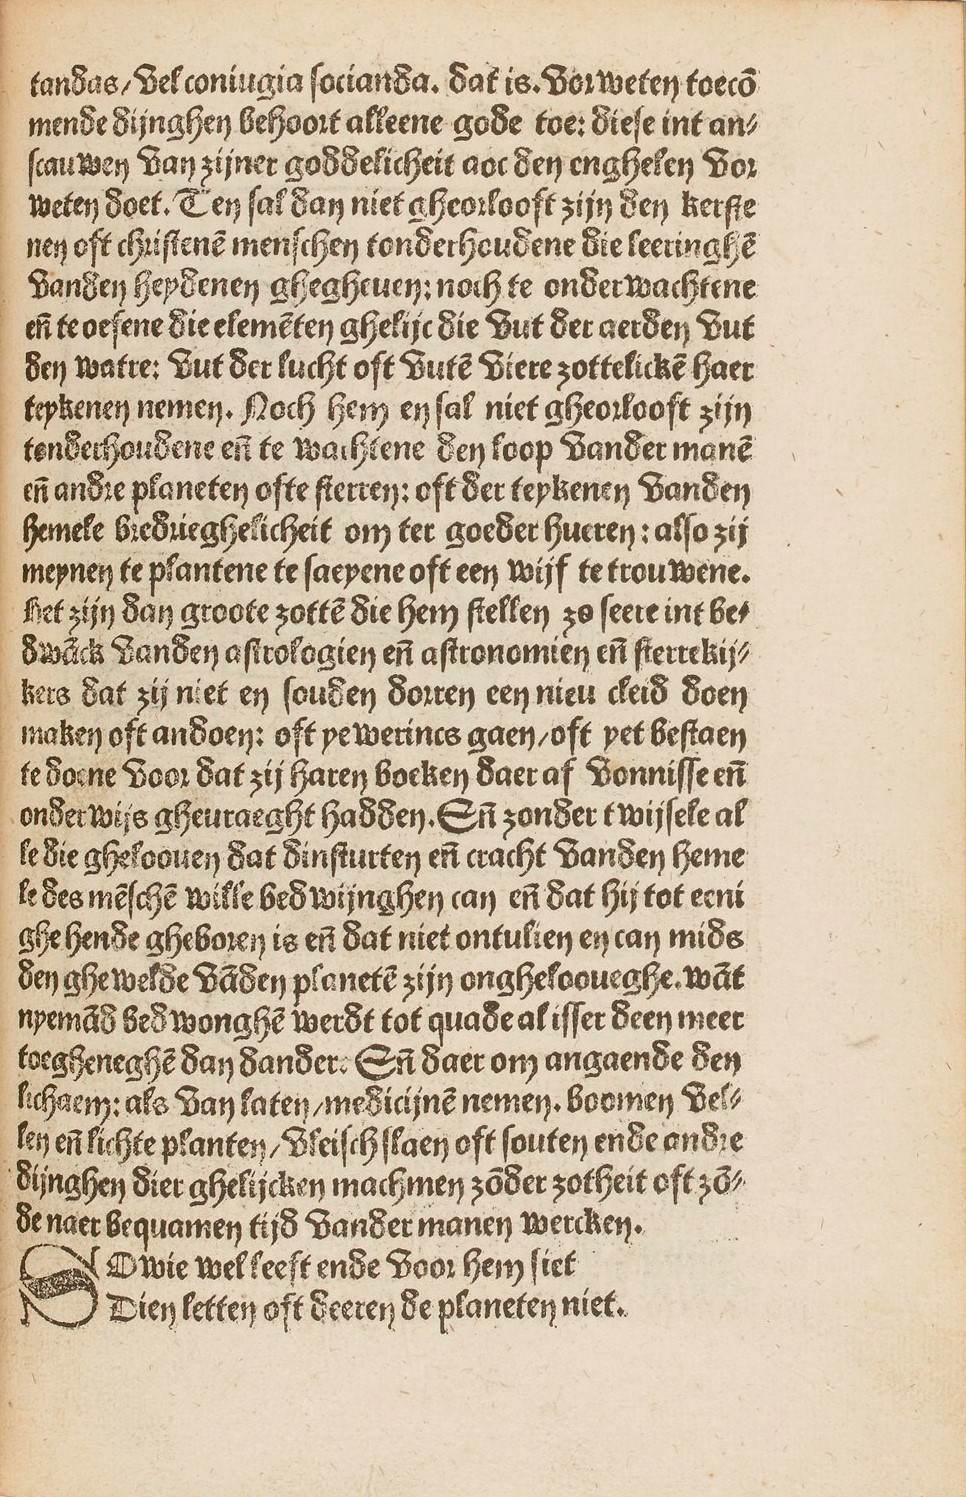 tandas/ Vel coniugia socianda. dat is. Vorweten toecō
mende dijnghen behoort alleene gode toe: diese int an⸗
scauwen Van zijner goddelicheit aoc den enghelen Vor
weten doet. Ten sal dan niet gheorlooft zijn den kerste
nen oft christenē menschen tonderhoudene die leeringhē
Vanden heydenen ghegheuen: noch te onderwachtene
eñ te oefene die elemēten ghelijc die Vut der aerden Vut
den watre: Vut der lucht oft Vutē Viere zottelickē haer
teykenen nemen. Noch hem en sal niet gheorlooft zijn
tonderhoudene eñ te wachtene den loop Vander manē
eñ andre planeten ofte sterren: oft der teykenen Vanden
hemele bredrieghelicheit om ter goeder hueren: also zij
meynen te plantene te saeyene oft een wijf te trouwene.
Het zijn dan groote zottē die hem stellen zo seere int be⸗
dwāck Vanden astrologien eñ astronomien eñ sterrekij⸗
kers dat zij niet en souden dorren een nieu cleid doen
maken oft andoen: oft yewerincs gaen/oft yet bestaen
te doene Voor dat zij haren boeken daer af Vonnisse eñ
onderwijs gheuraeght hadden. Eñ zonder twijfele al
le die ghelooven dat dinfturten eñ cracht Vanden heme
le des mēschē wille bedwijnghen can eñ dat hij tot eeni
ghe hende gheboren is eñ dat niet ontulien en can mids
den ghewelde Vāden planetē zijn onghelooueghe. wāt
nyemād bedwonghē werdt tot quade al isser deen meer
toegheneghē dan dander. Eñ daer om angaende den
lichaem: als Van laten/medicijnē nemen. boomen Vel⸗
len eñ lichte planten/Vleisch slaen oft souten ende andre
dijnghen dier ghelijcken machmen zōder zotheit oft zō⸗
de naer bequamen tijd Vander manen wercken.
SO wie wel leeft ende Voor hem siet
Dien letten oft deeren de planeten niet.